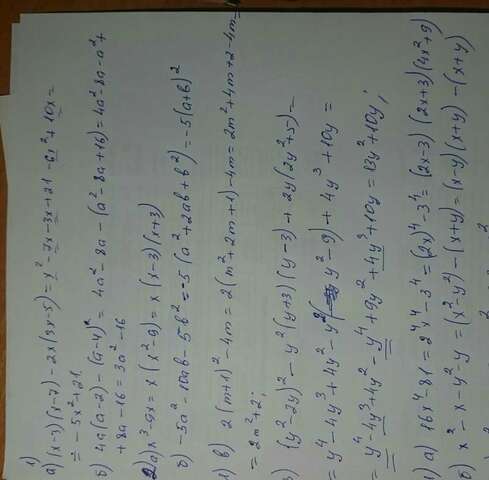 1)
а) (x-3)(x-7) - 2x(3x-5) = x² - 7x - 3x + 21 - 6x² + 10x =
= -5x² + 21.
б) 4a(a-2) - (a-4)² = 4a² - 8a - (a² - 8a + 16) = 4a² - 8a - a² +
+ 8a - 16 = 3a² - 16
2) а) x³ - 9x = x(x² - 9) = x(x-3)(x+3)
б) -5a² - 10ab - 5b² = -5(a² + 2ab + b²) = -5(a+b)²
1) в) 2(m+1)² - 4m = 2(m² + 2m + 1) - 4m = 2m² + 4m + 2 - 4m =
= 2m² + 2;
3) (y² - 2y)² - y²(y+3)(y-3) + 2y(2y² + 5) =
= y⁴ - 4y³ + 4y² - y²(y² - 9) + 4y³ + 10y =
= y⁴ - 4y³ + 4y² - y⁴ + 9y² + 4y³ + 10y = 13y² + 10y;
а) 16x⁴ - 81 = 2⁴x⁴ - 3⁴ = (2x)⁴ - 3⁴ = (2x-3)(2x+3)(4x²+9)
б) x² - x - y² - y = (x² - y²) - (x+y) = (x-y)(x+y) - (x+y)